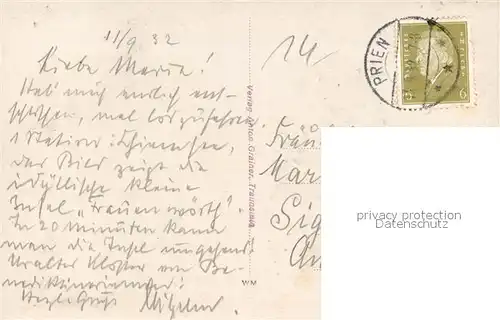 11/9 32
Liebe Maria!
Hab' mich endlich ent-
schlossen, mal loszufahren
1 Station: Chiemsee,
das Bild zeigt die
idyllische kleine
Insel „Frauenwörth"
In 20 Minuten kann
man die Insel umgehen.
Uraltes Kloster von Be-
nediktinerinnen!
Herzl. Gruß
14
PRIEN
6
Verlag Anton Grainer, Traunstein
WM
Fräu
Mar
Sig
privacy protection
Datenschutz